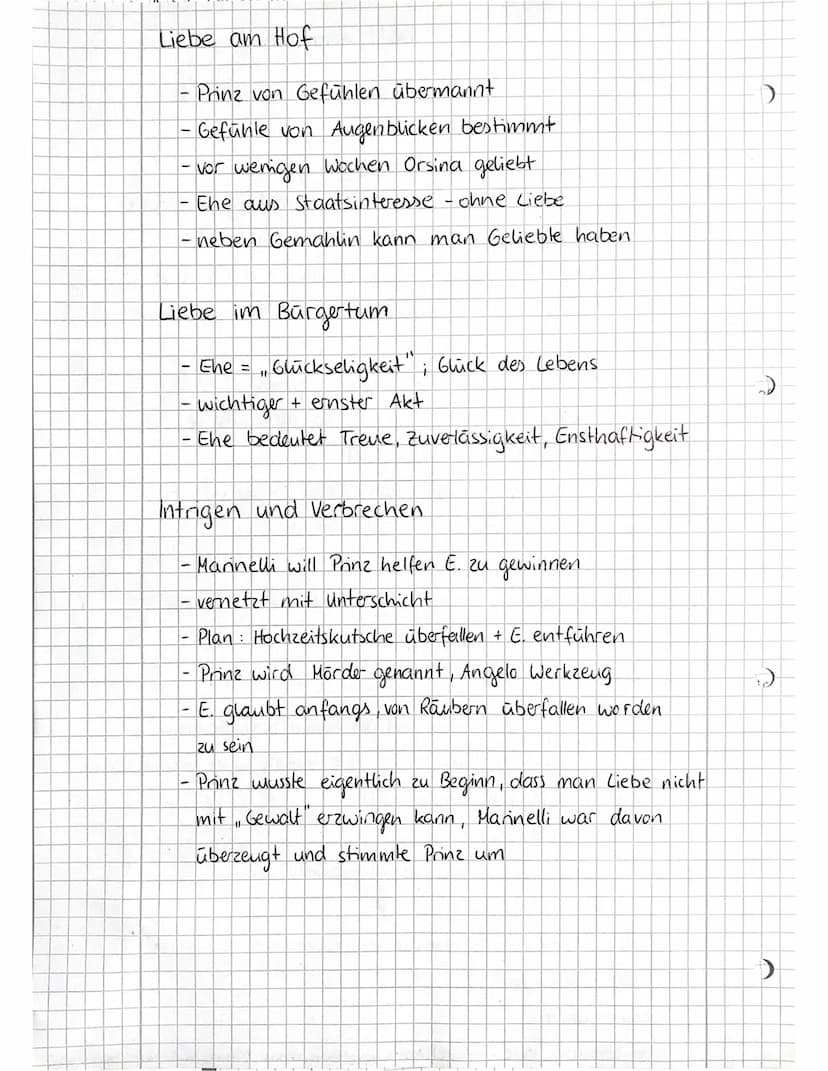 Liebe am Hof
- Prinz von Gefühlen übermannt
- Gefühle von Augenblicken bestimmt
- vor wenigen Wochen Orsina geliebt
- Ehe aus Staatsinteresse - ohne Liebe
- neben Gemahlin kann man Geliebte haben
Liebe im Bürgertum
- Ehe = „Glückseligkeit"; Glück des Lebens
- wichtiger + ernster Akt
- Ehe bedeutet Treue, Zuverlässigkeit, Ensthaftigkeit
Intrigen und Verbrechen
- Marinelli will Prinz helfen E. zu gewinnen
- vernetzt mit Unterschicht
- Plan: Hochzeitskutsche überfallen + E. entführen
- Prinz wird Mörder genannt, Angelo Werkzeug
- E. glaubt anfangs, von Räubern überfallen worden
zu sein
- Prinz wusste eigentlich zu Beginn, dass man Liebe nicht
mit „Gewalt" erzwingen kann, Marinelli war davon
überzeugt und stimmte Prinz um